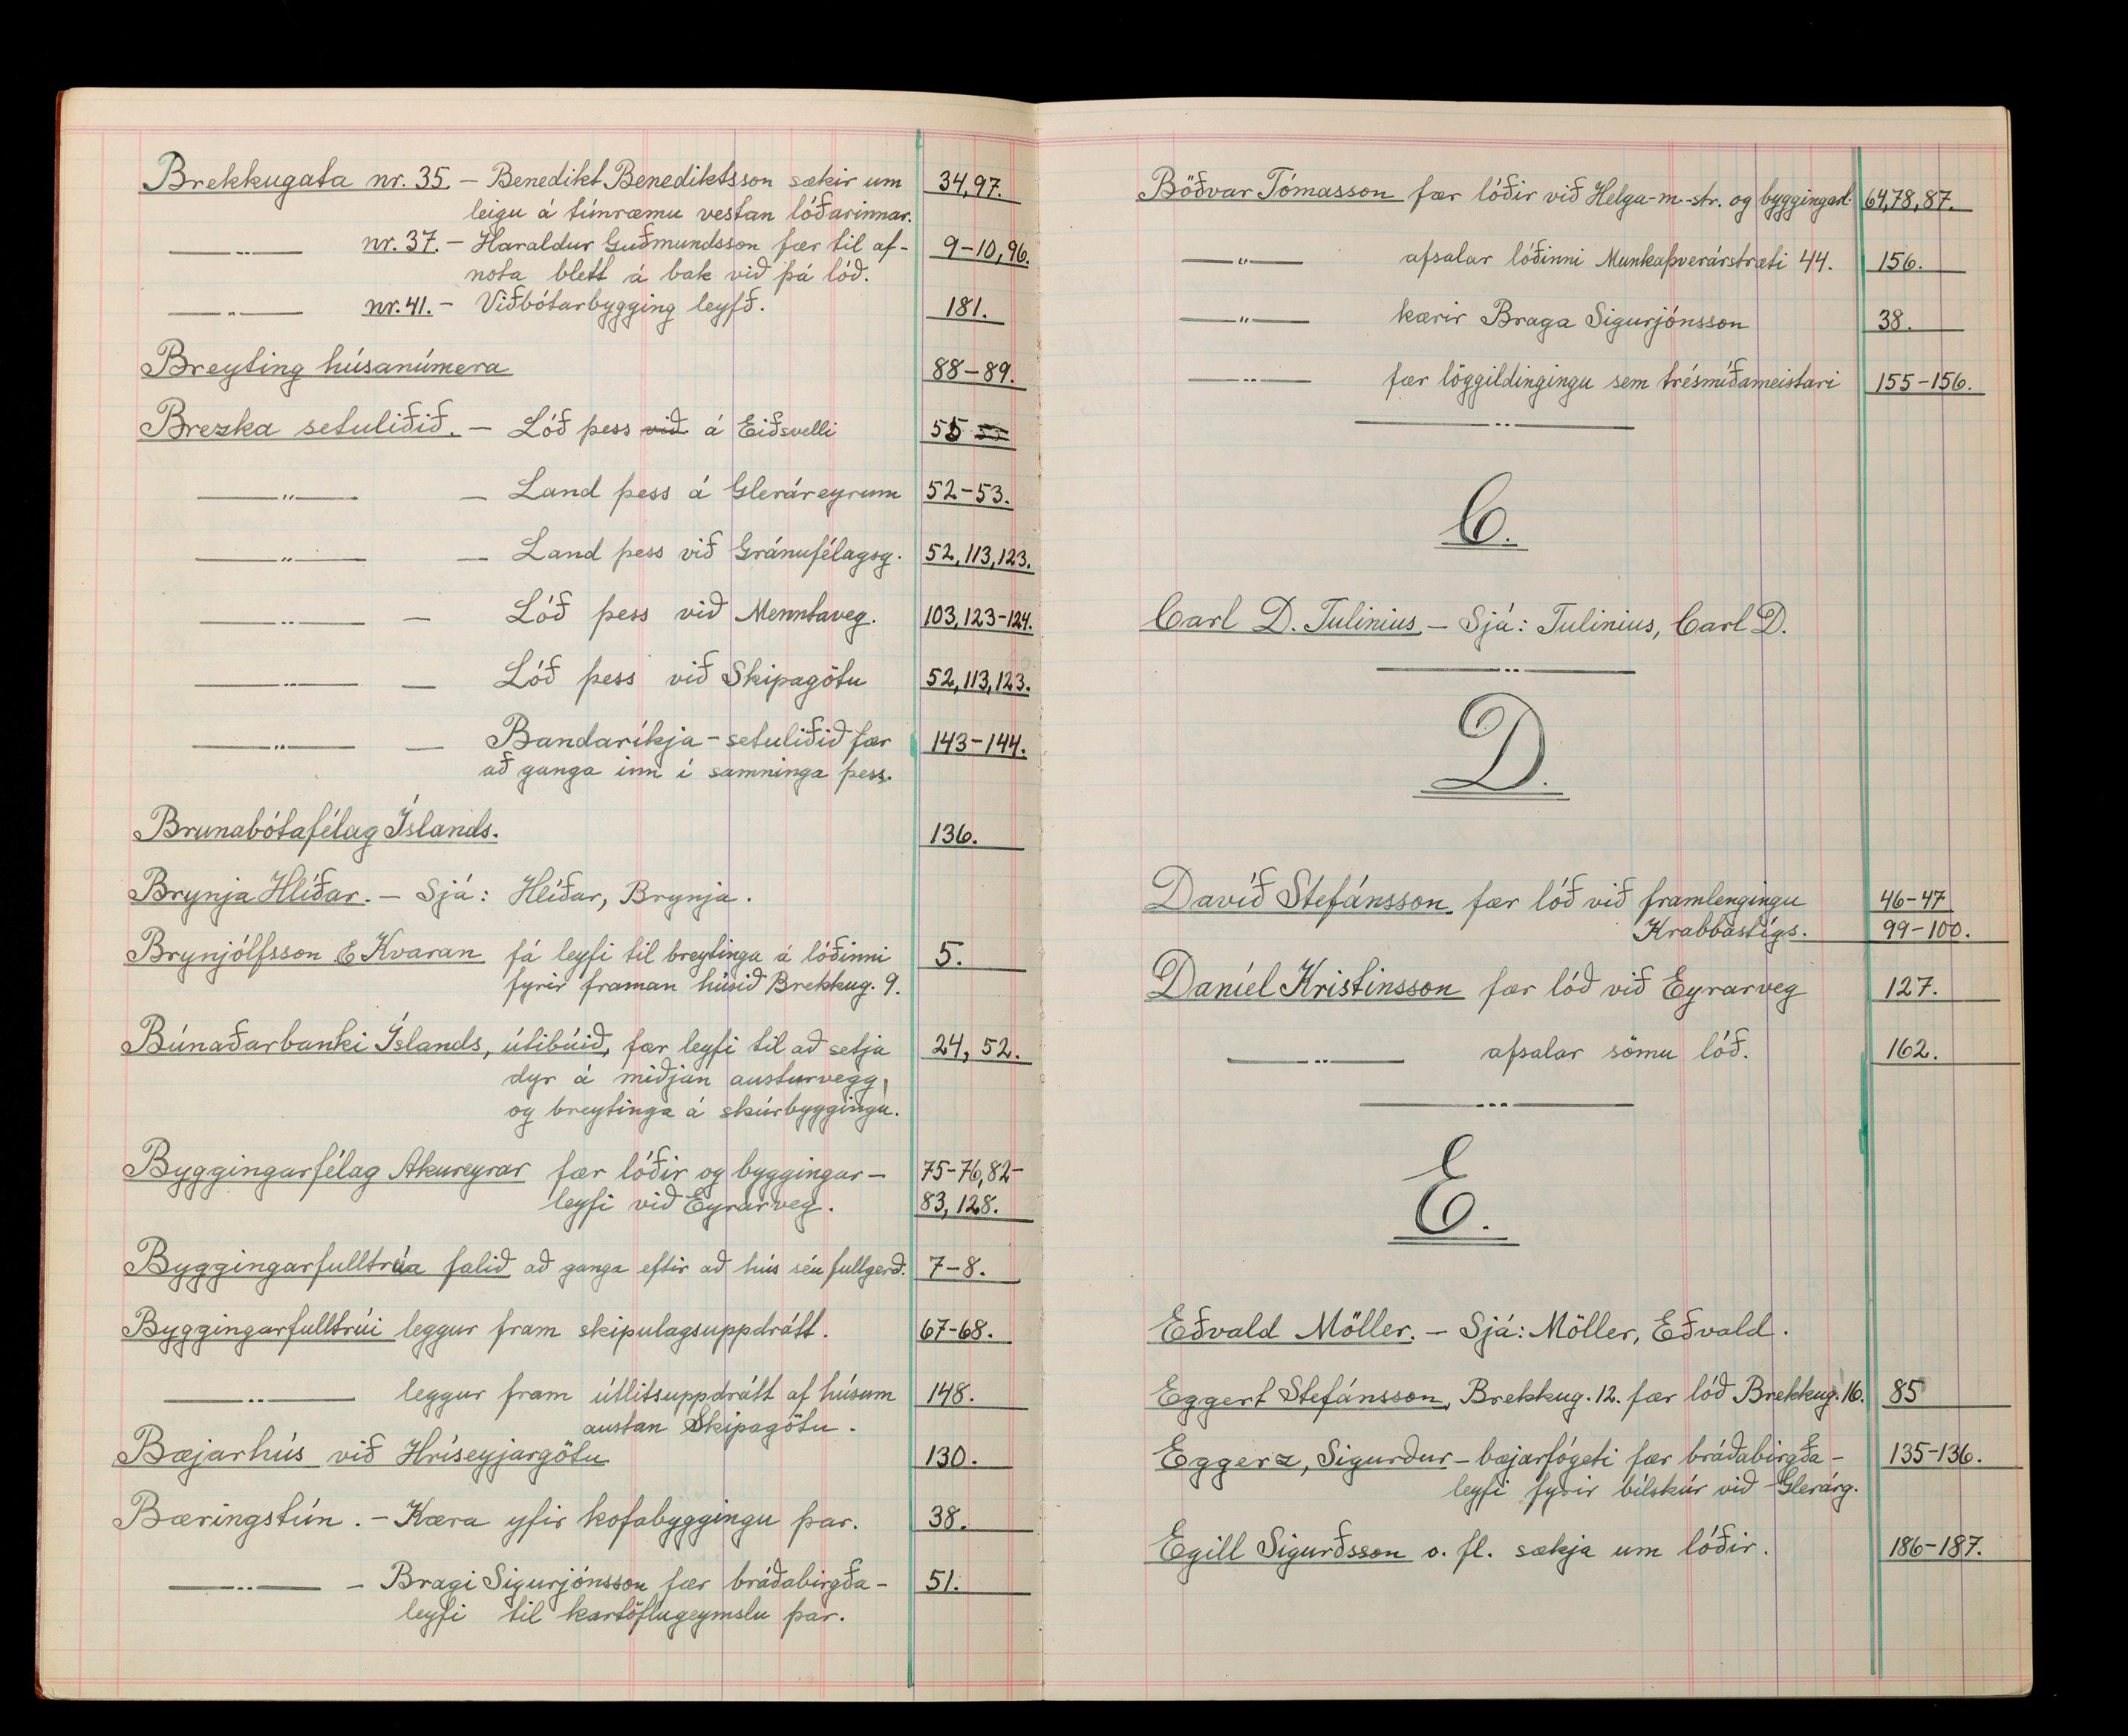 Brekkugata nr. 35. – Benedikt Benediktsson sækir um 34, 97.
leigu á túnræmu vestan lóðarinnar.
—〃— nr. 37. – Haraldur Guðmundsson fær til af- 9–10, 96.
nota blett á bak við þá lóð.
—〃— nr. 41. – Viðbótarbygging leyfð. 181.
Breyting húsanúmera 88–89.
Brezka setuliðið. – Lóð þess við á Eiðsvelli 55
—〃— – Land þess á Gleráreyrum 52–53.
—〃— – Land þess við Gránufélagsg. 52, 113, 123.
—〃— – Lóð þess við Menntaveg. 103, 123–124.
—〃— – Lóð þess við Skipagötu 52, 113, 123.
—〃— – Bandaríkja-setuliðið fær 143–144.
að ganga inn í samninga þess.
Brunabótafélag Íslands. 136.
Brynja Hlíðar. – Sjá: Hlíðar, Brynja.
Brynjólfsson & Kvaran fá leyfi til breytinga á lóðinni 5.
fyrir framan húsið Brekkug. 9.
Búnaðarbanki Íslands, útibúið, fær leyfi til að setja 24, 52.
dyr á miðjan austurvegg,
og breytinga á skúrbyggingu.
Byggingarfélag Akureyrar fær lóðir og byggingar- 75–76, 82–
leyfi við Eyrarveg. 83, 128.
Byggingarfulltrúa falið að ganga eftir að hús séu fullgerð. 7–8.
Byggingarfulltrúi leggur fram skipulagsuppdrátt. 67–68.
—〃— leggur fram útlitsuppdrátt af húsum 148.
austan Skipagötu.
Bæjarhús við Hríseyjargötu 130.
Bæringstún. – Kæra yfir kofabyggingu þar. 38.
—〃— – Bragi Sigurjónsson fær bráðabirgða- 51.
leyfi til kartöflugeymslu þar.
Böðvar Tómasson fær lóðir við Helga-m.-str. og byggingarl. 64, 78, 87.
—〃— afsalar lóðinni Munkaþverárstræti 44. 156.
—〃— kærir Braga Sigurjónsson 38.
—〃— fær löggildingingu sem trésmíðameistari 155–156.
C.
Carl D. Tulinius – Sjá: Tulinius, Carl D.
D.
Davíð Stefánsson fær lóð við framlengingu 46–47
Krabbastígs. 99–100.
Daníel Kristinsson fær lóð við Eyrarveg 127.
—〃— afsalar sömu lóð. 162.
E.
Eðvald Möller. – Sjá: Möller, Eðvald.
Eggert Stefánsson, Brekkug. 12. fær lóð Brekkug. 16. 85
Eggerz, Sigurður – bæjarfógeti fær bráðabirgða- 135–136.
leyfi fyrir bílskúr við Glerárg.
Egill Sigurðsson o. fl. sækja um lóðir. 186–187.